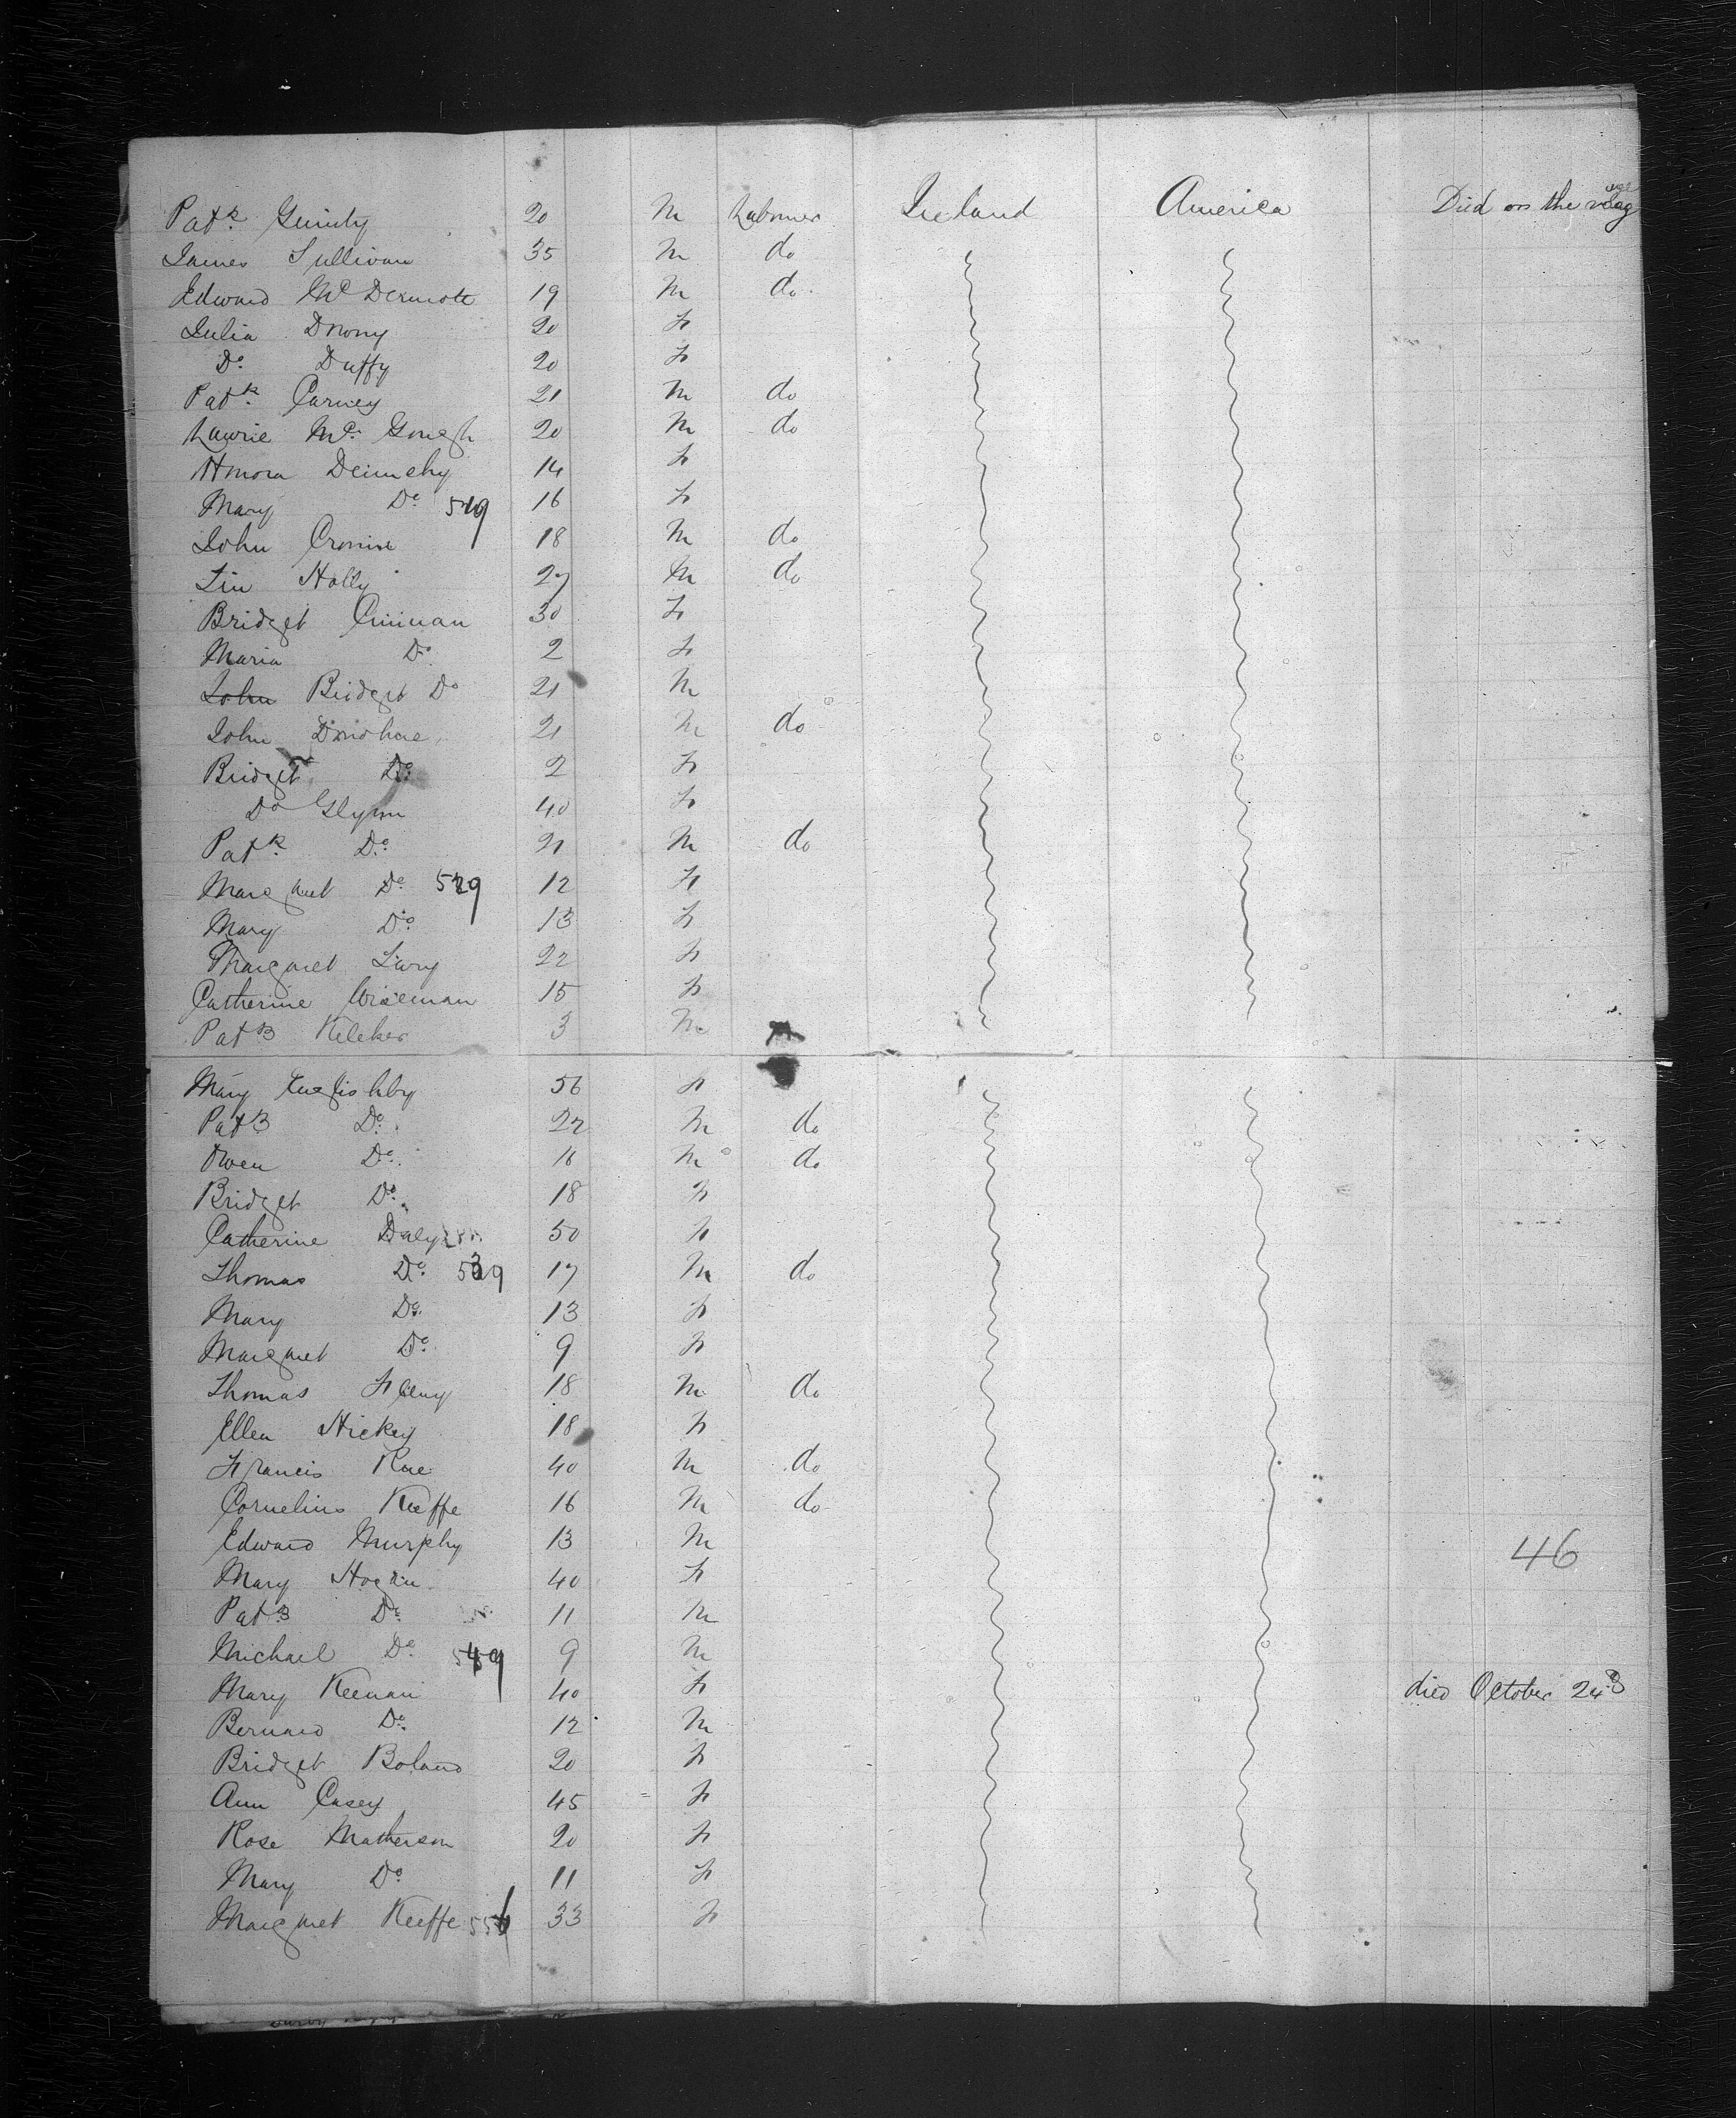 Patk Ginity 20 M Labourer Ireland America Died on the voyage
James Sullivan 35 M do
Edward McDermott 19 M do
Julia Drony 20 F
Do Duffy 20 F
Patk Carney 21 M do
Lawrie McGough 20 M do
Honora 14 F
Mary Do 519 16 F
John Cronin 18 M do
Tim Holly 27 M do
Bridget 30 F
Maria Do 2 F
John Bridget Do 21 M
John Donohue 21 M do
Bridget Do 2 F
Do Glynn 40 F
Patk Do 21 M do
Margaret Do 529 12 F
Mary Do 13 F
Margaret Lavry 22 F
Catherine Wiseman 15 F
Patk Keleher 3 M
Mary Englishby 56 F
Patk Do 22 M do
Owen Do 16 M do
Bridget Do 18 F
Catherine Daly 50 F
Thomas Do 539 17 M do
Mary Do 13 F
Margaret Do 9 F
Thomas 18 M do
Ellen Hickey 18 F
Francis Roe 40 M do
Cornelius Keeffe 16 M do
Edward Murphy 13 M
46
Mary Hogan 40 F
Patk Do 11 M
Michael Do 549 9 M
Mary Keenan 40 F died October 24
Bernard Do 12 M
Bridget Boland 20 F
Ann Casey 45 F
Rose Matherson 20 F
Mary Do 11 F
Margaret Keeffe 556 33 F